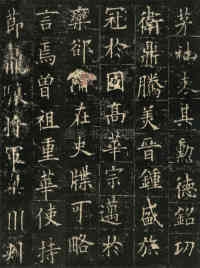 茅社表其勳德銘功
衛鼎騰美晉鍾盛族
冠於國高華宗邁於
欒郤在史牒可略
言焉曾祖重華使持
節龍驤將軍梁州刺